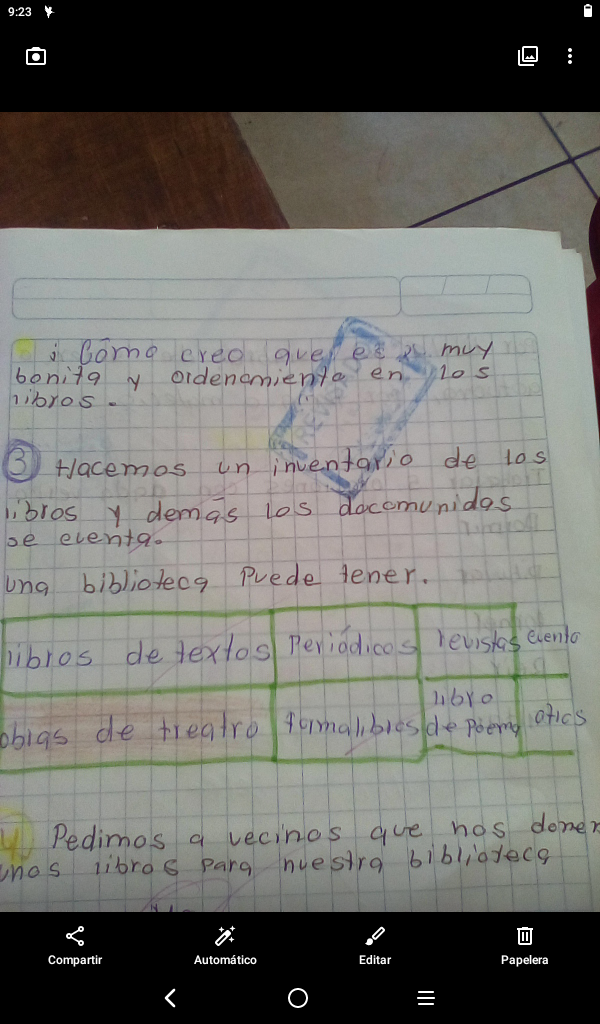 9:23
¡ Cómo creo que es muy
bonita y ordenamiento en los
libros.
3 Hacemos un inventario de los
libros y demás los docomunidas
se eventa.
una biblioteca Puede tener.
libros de textos Periódicos revistas evento
obias de treatro libro
de Poema otics
4 Pedimos a vecinos que nos donen
unos libros para nuestra biblioteca
Compartir Automático Editar Papelera